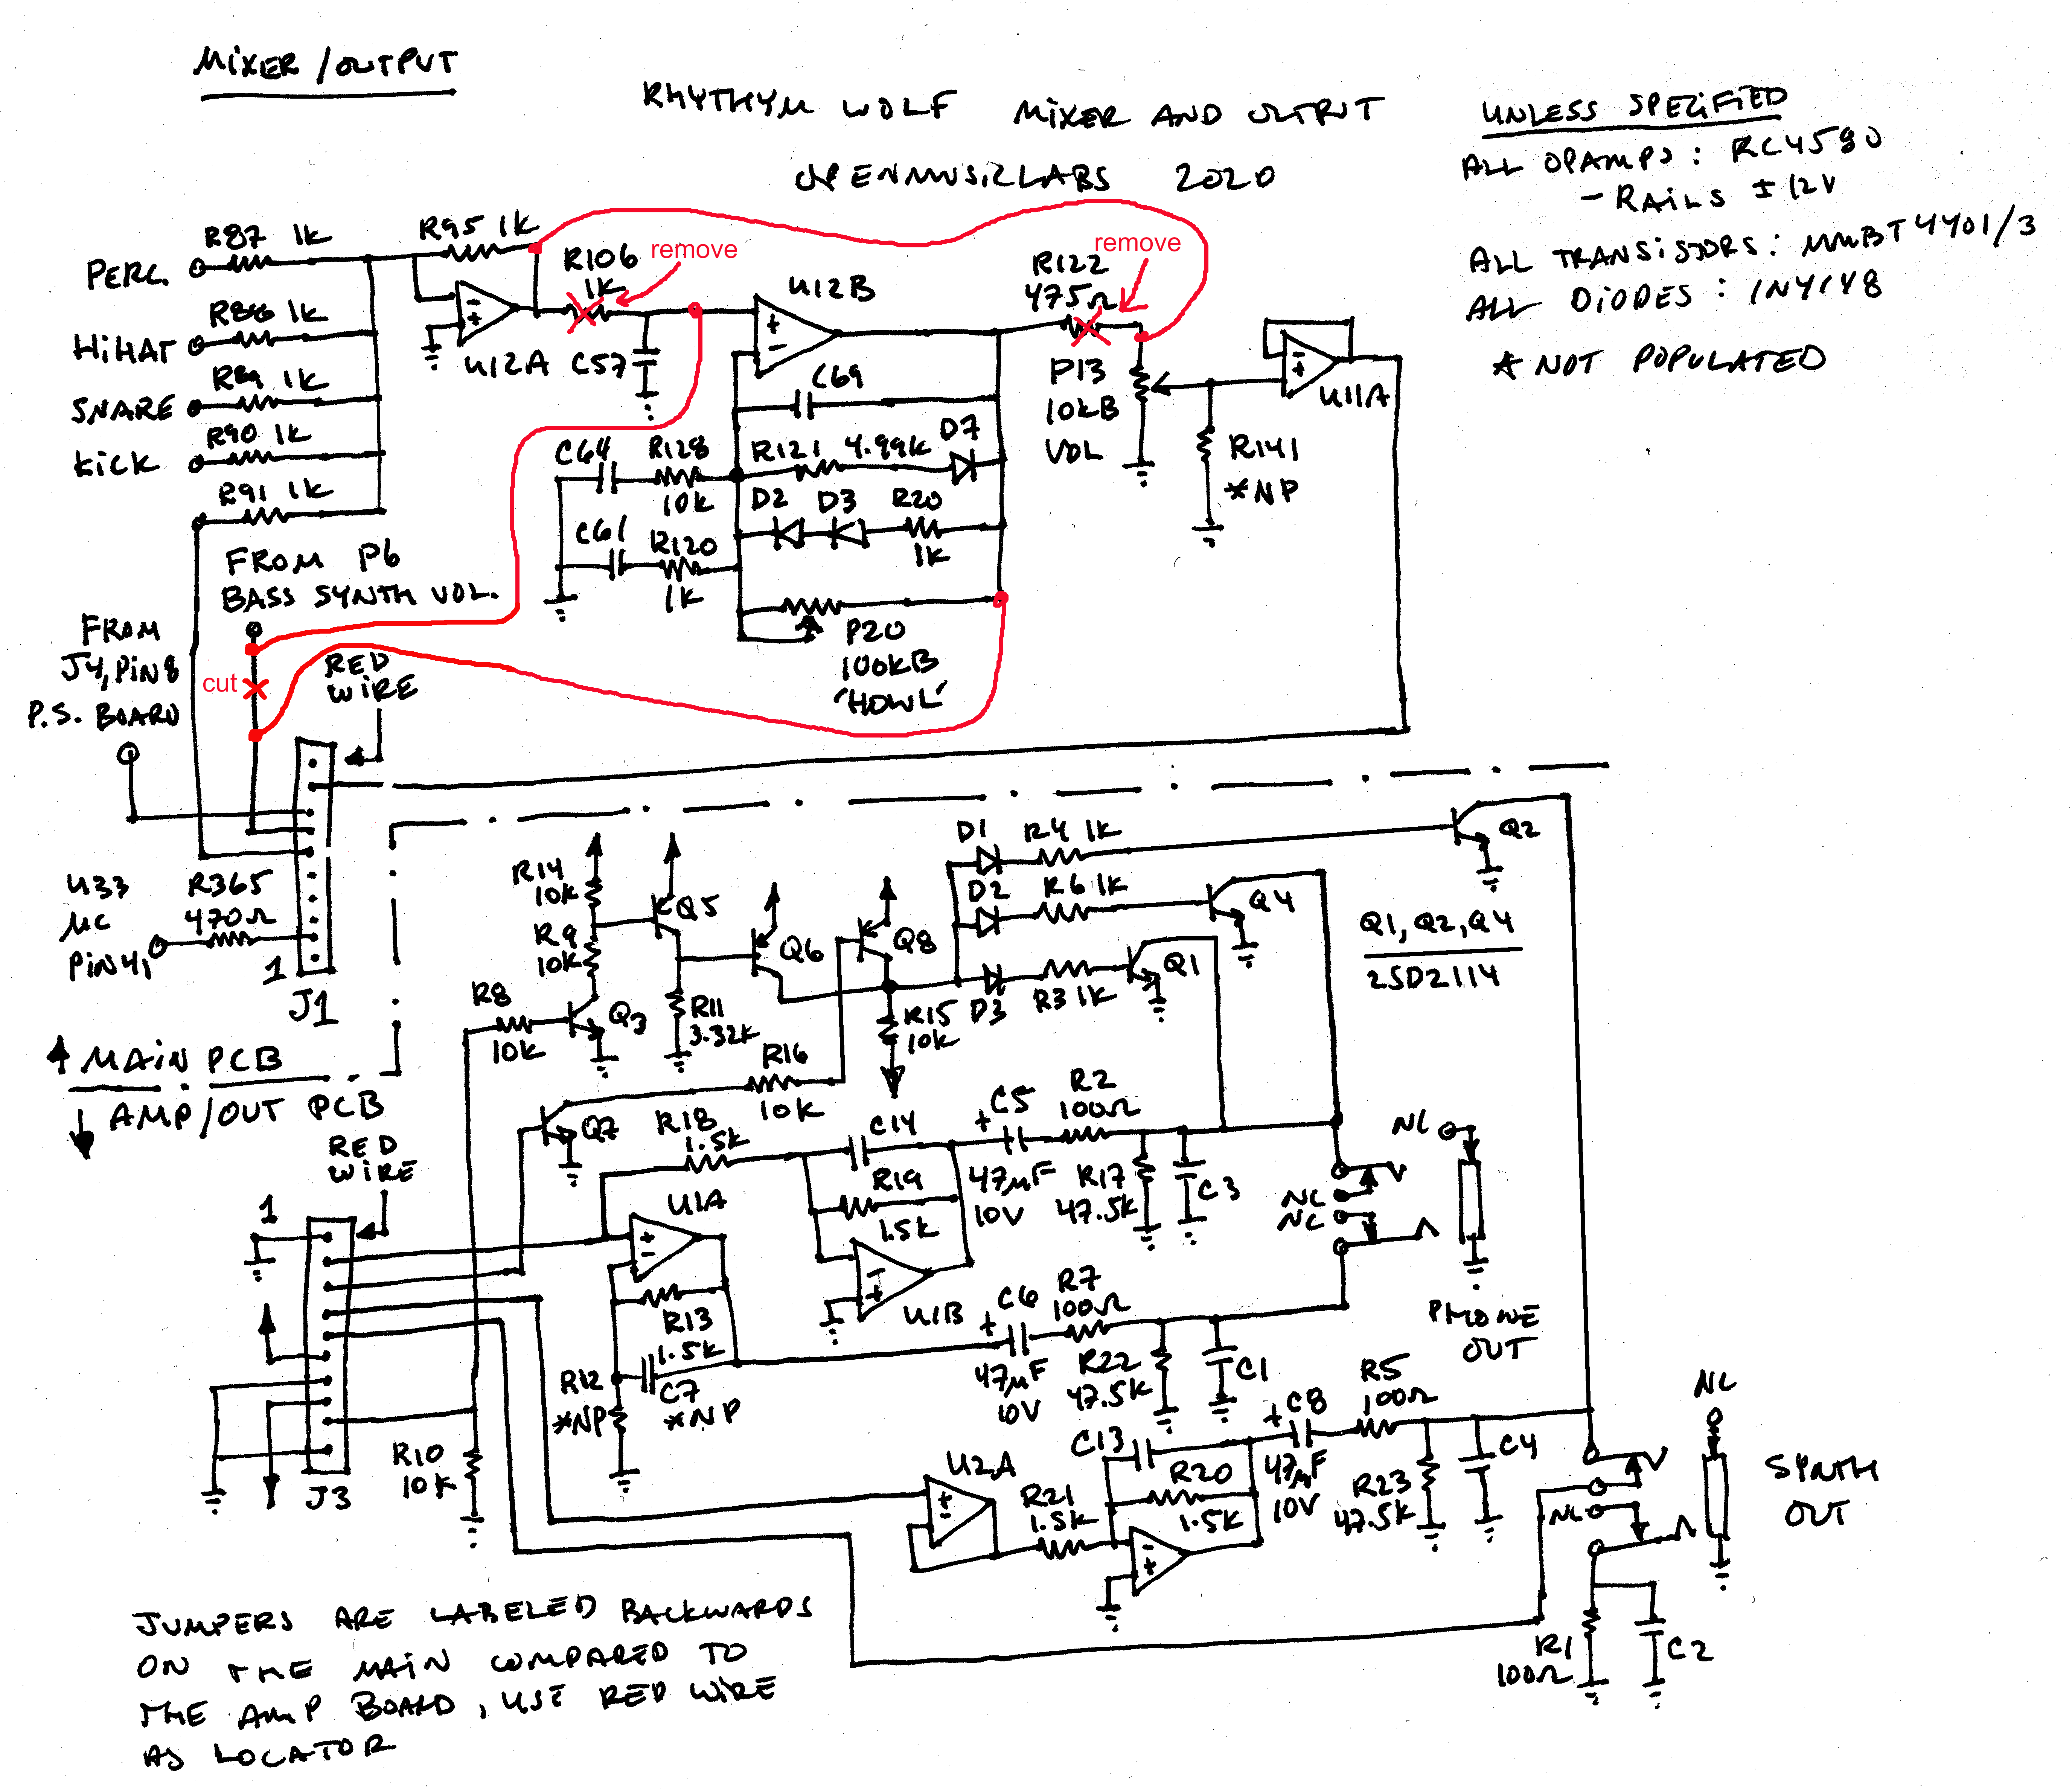 MIXER / OUTPUT
RHYTHYM WOLF MIXER AND OUTPUT
OPENMUSICLABS 2020
UNLESS SPECIFIED
ALL OPAMPS : RC4580
- RAILS ± 12V
ALL TRANSISTORS : MMBT4401/3
ALL DIODES : 1N4148
* NOT POPULATED
PERC.
R87 1K
HIHAT
R88 1K
SNARE
R89 1K
KICK
R90 1K
R91 1K
R95 1K
U12A
R106
1K
remove
C57
U12B
C69
C64
R128
10K
R121 4.99K
D7
D2 D3 R20
1K
C61
R120
1K
P20
100KB
'HOWL'
R122
475Ω
remove
P13
10KB
VOL
R141
*NP
U11A
FROM P6
BASS SYNTH VOL.
FROM
J4, PIN 8
P.S. BOARD
cut
RED
WIRE
U33
µC
PIN 41
R365
470Ω
1
J1
MAIN PCB
AMP/OUT PCB
RED
WIRE
R14
10K
R9
10K
R8
10K
Q3
Q5
R11
3.32K
Q6
Q8
R15
10K
R16
10K
Q7
D1 R4 1K
Q2
D2 R6 1K
Q4
D3 R3 1K
Q1
Q1, Q2, Q4
2SD2114
R18
1.5K
C14
R19
1.5K
U1A
U1B
R13
1.5K
R12
*NP
C7
*NP
+
C5
47µF
10V
R2
100Ω
R17
47.5K
C3
NC
NC
NC
PHONE
OUT
+
C6
47µF
10V
R7
100Ω
R22
47.5K
C1
1
J3
R10
10K
U2A
R21
1.5K
C13
R20
1.5K
+
C8
47µF
10V
R5
100Ω
R23
47.5K
C4
NC
NC
SYNTH
OUT
R1
100Ω
C2
JUMPERS ARE LABELED BACKWARDS
ON THE MAIN COMPARED TO
THE AMP BOARD, USE RED WIRE
AS LOCATOR